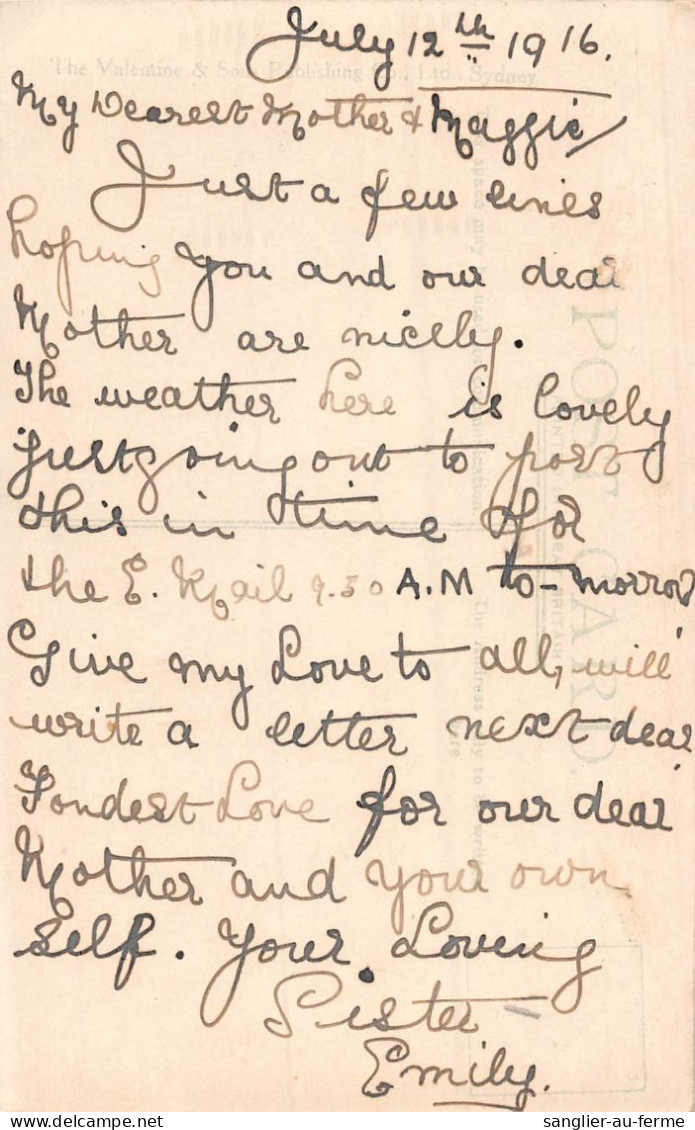 July 12th 1916.
The Valentine & Sons Publishing Co., Ltd., Sydney
My Dearest Mother & Maggie
Just a few lines
hoping you and our dear
Mother are nicely.
The weather here is lovely
just going out to post
this in time for
the E. Mail 9.30 A.M to-morrow
Give my Love to all, will
write a letter next dear
Fondest Love for our dear
Mother and your own
self. Your Loving
Sister
Emily.
POST CARD.
sanglier-au-ferme